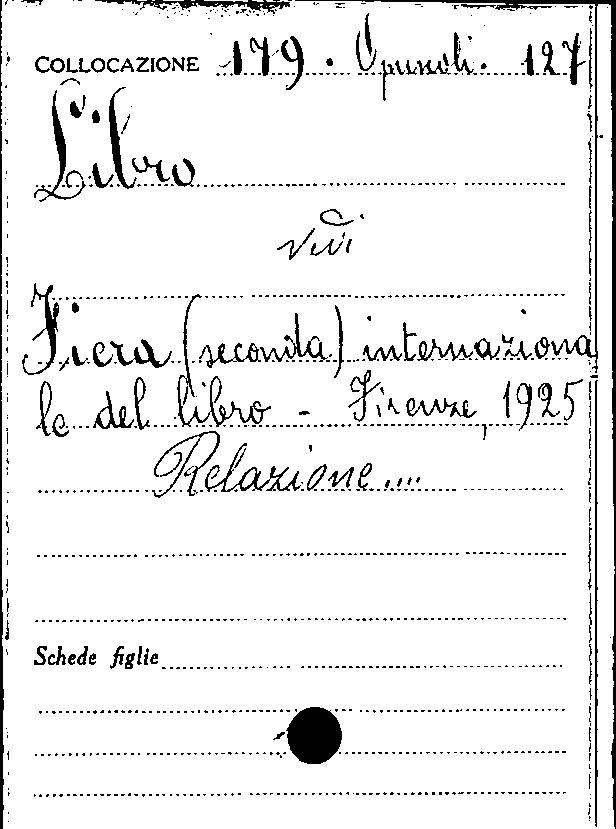 COLLOCAZIONE 179. Opuscoli. 127
Libro
vedi
Fiera (seconda) internaziona
le del libro - Firenze, 1925
Relazione....
Schede figlie